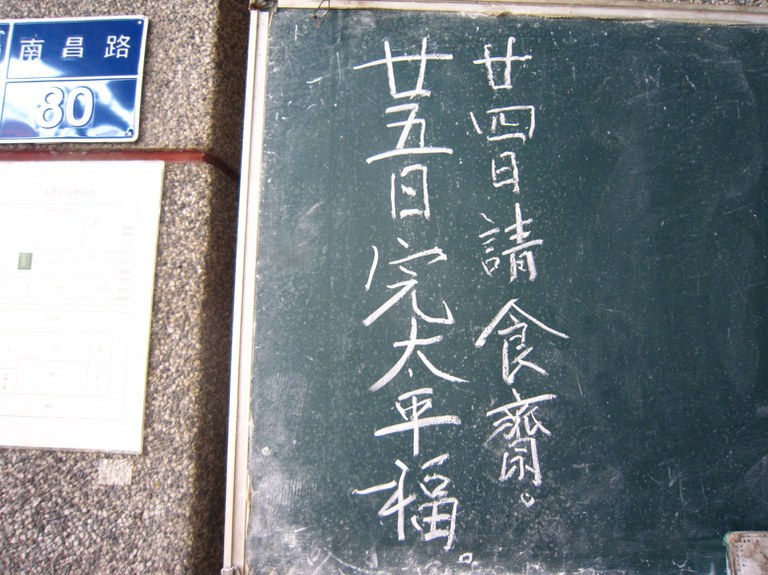 南昌路
80
廿四日請食齋。
廿五日完太平福。